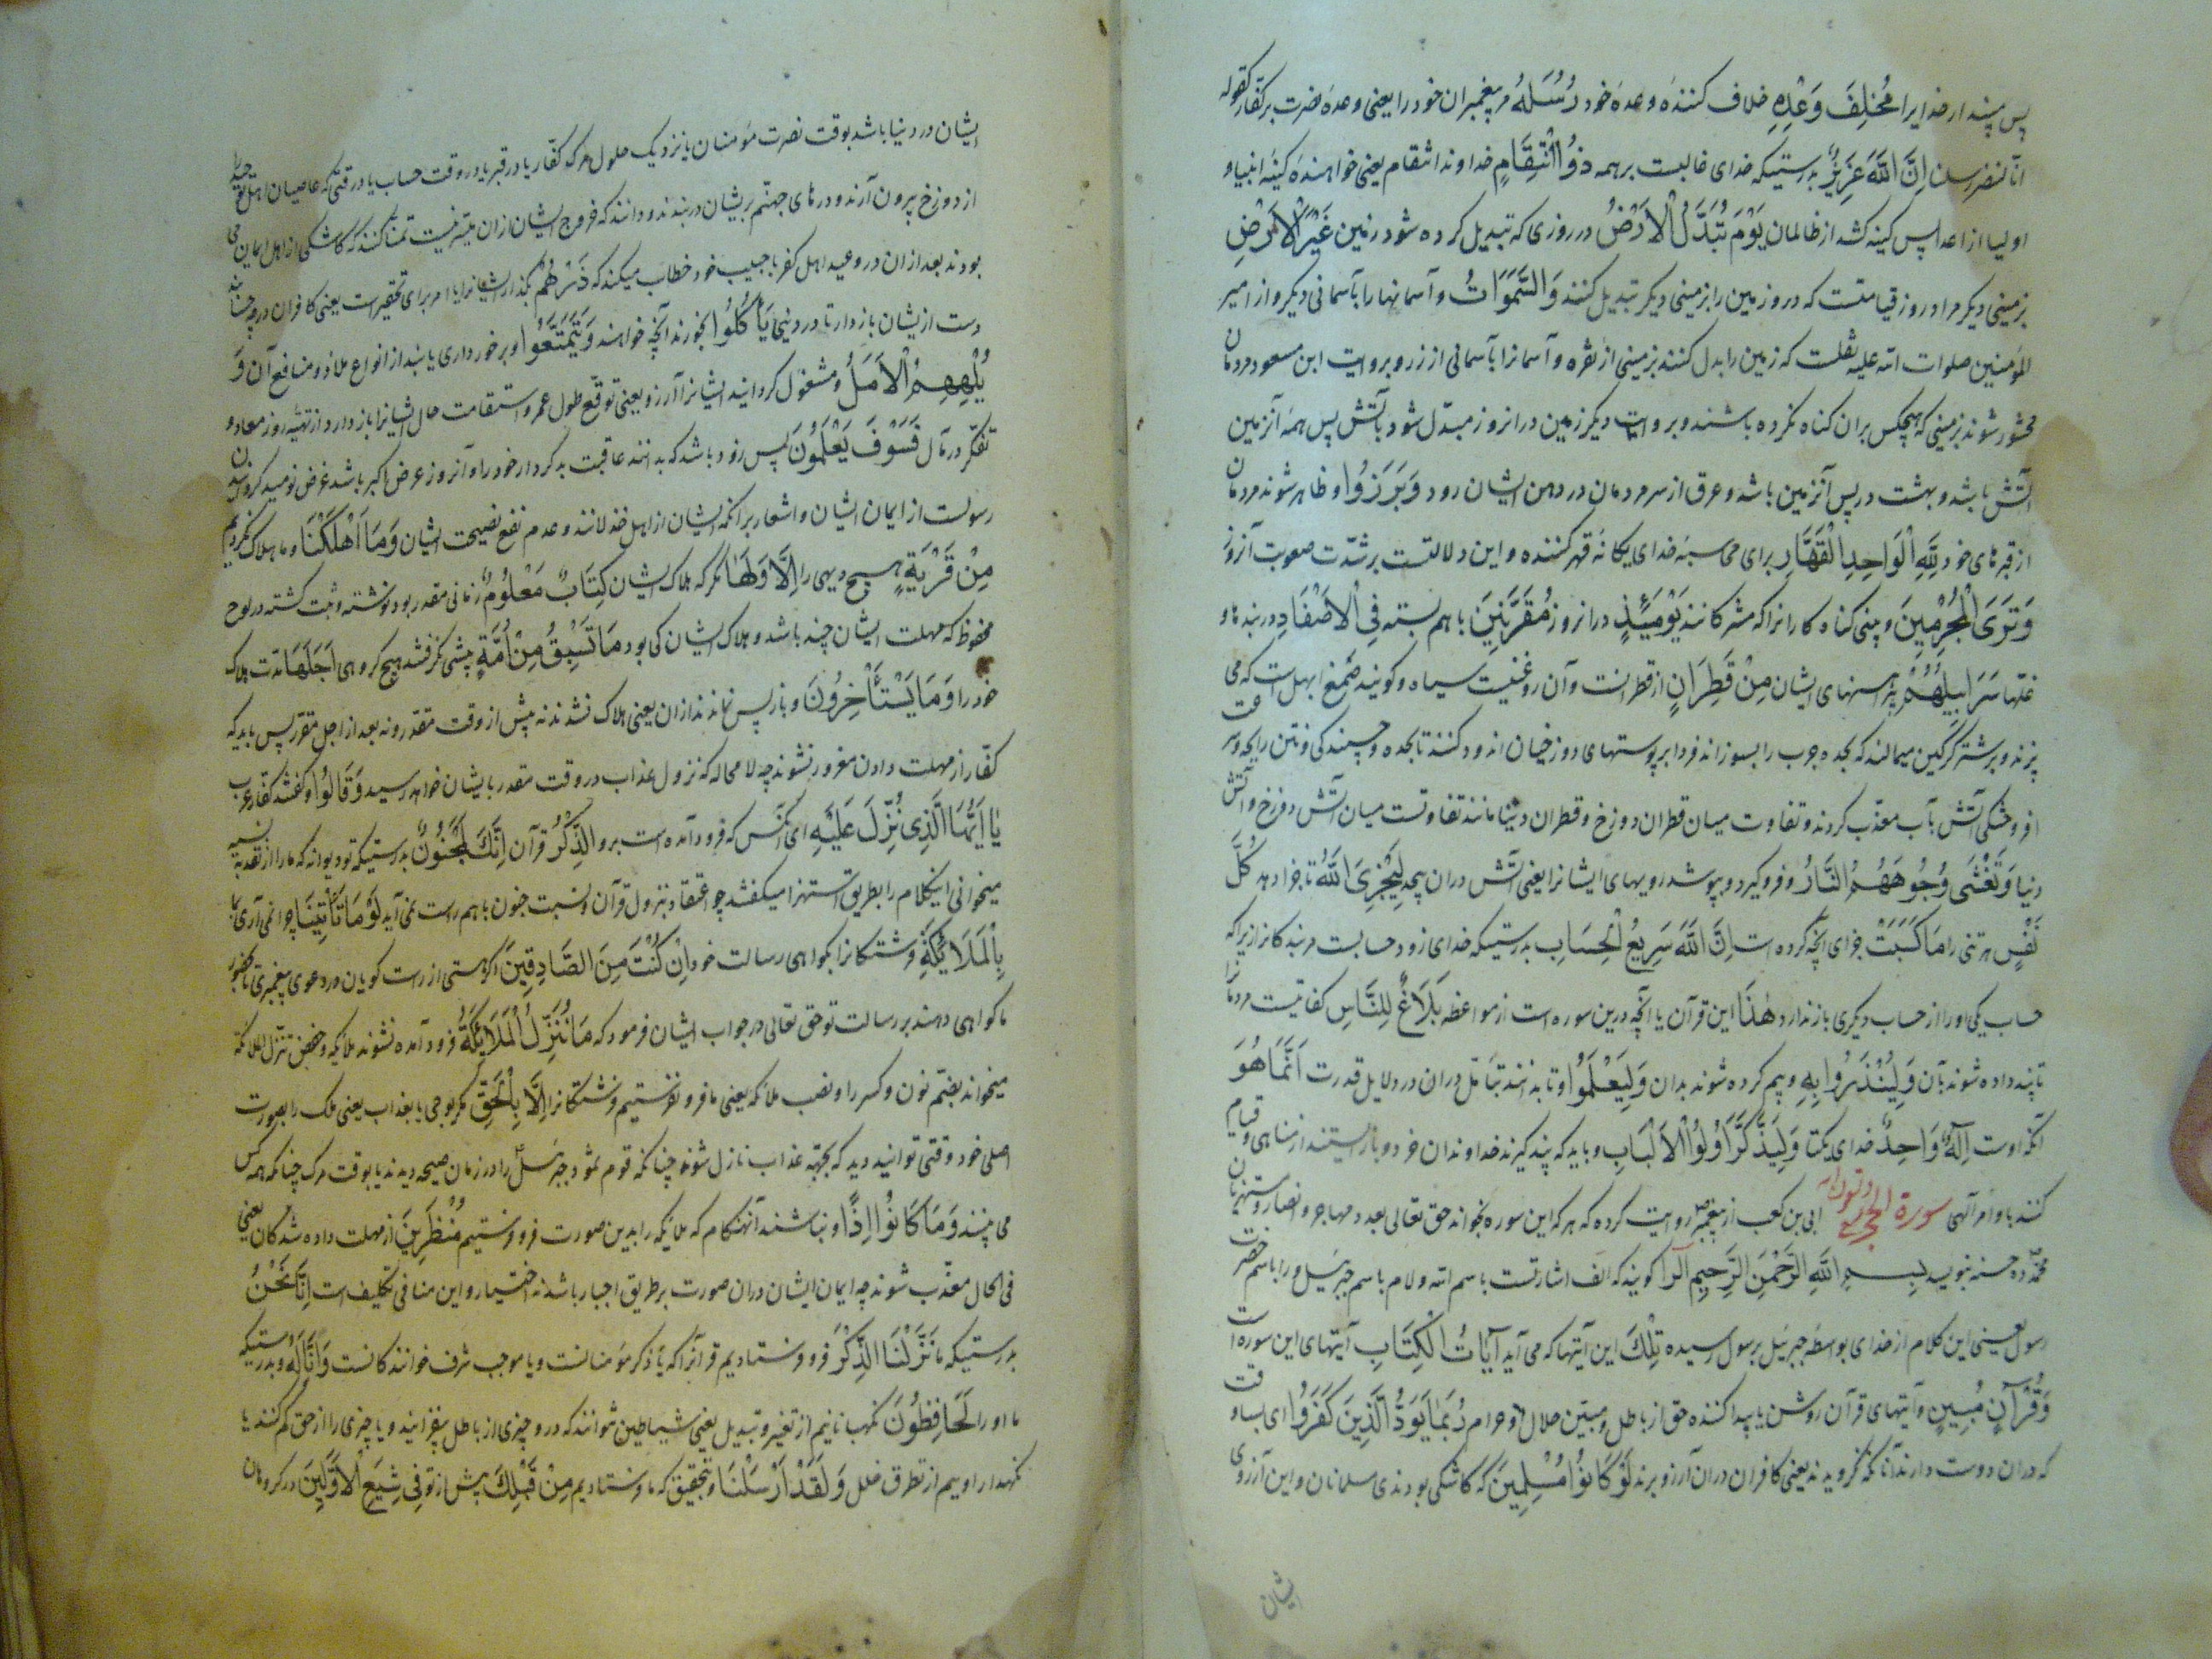 پس مپندار خدایرا مُخْلِفَ وَعْدِهِ خلاف کننده وعدهٔ خود رُسُلَهُ مر پیغمبران خود را یعنی وعدهٔ نصرت بر کفار کقوله
انا لننصر رسلنا اِنَّ اللّٰهَ عَزِیزٌ بدرستیکه خدای غالبست بر همه ذُو انْتِقَامٍ خداوند انتقام یعنی خواهندهٔ کینهٔ انبیا و
اولیا از اعدا پس کینه کشد از ظالمان یَوْمَ تُبَدَّلُ الْاَرْضُ در روزی که تبدیل کرده شود زمین غَیْرَ الْاَرْضِ
بزمینی دیکر مراد روز قیامتست که در و زمین را بزمینی دیکر تبدیل کنند وَالسَّمٰوَاتُ و آسمانها را بآسمانی دیکر و از امیر
المؤمنین صلوات الله علیه نقلست که زمین را بدل کنند بزمینی از نقره و آسمانرا بآسمانی از زر و بروایت ابن مسعود مردمان
محشور شوند بزمینی که هیچکس بران کناه نکرده باشند و بروایت دیکر زمین درانروز مبدّل شود بآتش پس همه آنزمین
آتش باشد و بهشت در پس آنزمین باشد و عرق از سر مردمان در دهن ایشان رود وَبَرَزُوا و ظاهر شوند مردمان
از قبرهای خود لِلّٰهِ الْوَاحِدِ الْقَهَّارِ برای محاسبهٔ خدای یکانه قهر کننده و این دلالتست بر شدّت صعوبت آنروز
وَتَرَی الْمُجْرِمِینَ و بینی کناه کارانرا که مشرکانند یَوْمَئِذٍ درانروز مُقَرَّنِینَ با هم بسته فِی الْاَصْفَادِ در بندها و
غلّها سَرَابِیلُهُمْ پیراهنهای ایشان مِنْ قَطِرَانٍ از قطرانست و آن روغنیست سیاه و کویند صمغ ابهل است که می
پزند و بر شتر کرکین میمالند که بحده جرب را بسوزاند فردا بر پوستهای دوزخیان اندود کنند تا بحده و چسپندکی و نتن رایحه و سر
افروختکی آتش بآب معذّب کردند و تفاوت میان قطران دوزخ و قطران دنیا مانند تفاوتست میان آتش دوزخ و آتش
دنیا وَتَغْشٰی وُجُوهَهُمُ النَّارُ و فروکیرد و بپوشد رویهای ایشانرا یعنی آتش دران پیچد لِیَجْزِیَ اللّٰهُ تا جزا دهد کُلَّ
نَفْسٍ هر تنی را مَا کَسَبَتْ جزای آنچه کرده است اِنَّ اللّٰهَ سَرِیعُ الْحِسَابِ بدرستیکه خدای زود حسابست مر بندکانرا زیرا که
حساب یکی او را از حساب دیکری باز ندارد هٰذَا این قرآن یا آنچه درین سوره است از مواعظ بَلَاغٌ لِلنَّاسِ کفایتست مردمانرا
تا پند داده شوند بآن وَلِیُنْذَرُوا بِهِ و بیم کرده شوند بدان وَلِیَعْلَمُوْا و تا بدانند بتامّل دران در دلایل قدرت اَنَّمَا هُوَ
آنکه اوست اِلٰهٌ وَاحِدٌ خدای یکتا وَلِیَذَّکَّرَ اُولُوا الْاَلْبَابِ و باید که پند کیرند خداوندان خرد و باز ایستند از مناهی و قیام
کنند باوامر الهی سورة الحجر ابی بن کعب از پیغمبر روایت کرده که هر که این سوره بخواند حق تعالی بعدد مهاجر و انصار و مستهزیان
محمّد ده حسنه بنویسد بِسْمِ اللّٰهِ الرَّحْمٰنِ الرَّحِیمِ الٓرٰ کویند که الف اشارتست باسم الله و لام باسم جبرئیل و را باسم حضرت
رسول یعنی این کلام از خدای بواسطهٔ جبرئیل برسول رسیده تِلْکَ این آیتها که می آید آیَاتُ الْکِتَابِ آیتهای این سوره است
وَقُرْآنٍ مُبِینٍ و آیتهای قرآن روشن یا پیدا کننده حق از باطل و مبیّن حلال و حرام رُبَمَا یَوَدُّ الَّذِینَ کَفَرُوا ای بسا وقت
که دران دوست دارند آنانکه نکرویدند یعنی کافران دران آرزو برند لَوْ کَانُوا مُسْلِمِینَ که کاشکی بودندی مسلمانان و این آرزوی
ایشان
ایشان در دنیا باشد بوقت نصرت مؤمنان یا نزدیک حلول مرک کفّار یا در قبر یا در وقت حساب یا در وقتی که عاصیان اهل توحید
از دوزخ بیرون آرند و درهای جهنّم بر ایشان در بندند و دانند که خروج ایشان ازان میسّر نیست تمنّا کنند که کاشکی از اهل ایمان می
بودند بعد ازان در وعید اهل کفر با حبیب خود خطاب میکند که ذَرْهُمْ بکذار ایشانرا امر برای تحقیرست یعنی کافران در چه حسابند
دست ازیشان بازدار تا در دنیی یَأْکُلُوا بخورند آنچه خواهند وَیَتَمَتَّعُوْا و برخورداری یابند از انواع ملاذ و منافع آن وَ
یُلْهِهِمُ الْاَمَلُ و مشغول کرداند ایشانرا آرزو یعنی توقّع طول عمر و استقامت حال ایشانرا باز دارد از تهیّه روز معاد و
تفکّر در مآل فَسَوْفَ یَعْلَمُونَ پس زود باشد که بدانند عاقبت بد کردار خود را و آنروز عرض اکبر باشد غرض نومید کردن
رسولست از ایمان ایشان و اشعار بر آنکه ایشان از اهل خذلانند و عدم نفع نصیحت ایشان وَمَا اَهْلَکْنَا و ما هلاک نکردیم
مِنْ قَرْیَةٍ هیچ دیهی را اِلَّا وَلَهَا مکر که هلاک ایشان کِتَابٌ مَعْلُومٌ زمانی مقدر بود نوشته و ثبت کشته در لوح
محفوظ که مهلت ایشان چند باشد و هلاک ایشان کی بود مَا تَسْبِقُ مِنْ اُمَّةٍ پیشی نکرفتند هیچ کروهی اَجَلَهَا مدّت هلاک
خود را وَمَا یَسْتَأْخِرُونَ و باز پس نماندند ازان یعنی هلاک نشدند نه پیش از وقت مقدّر و نه بعد از اجل مقرّر پس باید که
کفّار از مهلت دادن مغرور نشوند چه لامحاله که نزول عذاب در وقت مقدر بایشان خواهد رسید وَقَالُوا و کفتند کفار عرب
یٰا اَیُّهَا الَّذِی نُزِّلَ عَلَیْهِ ای آنکس که فرود آمده است برو الذِّکْرُ قرآن اِنَّکَ لَمَجْنُونٌ بدرستیکه تو دیوانه که ما را از نقد به نسیه
میخوانی این کلام را بطریق استهزا میکفتند چو اعتقاد نزول قرآن و نسبت جنون با هم راست نمی آید لَوْ مَا تَأْتِینَا چرا نمی آری بما
بِالْمَلَائِکَةِ فرشتکانرا بکواهی رسالت خود اِنْ کُنْتَ مِنَ الصَّادِقِینَ اکر هستی از راست کویان در دعوی پیغمبری تا بحضور
ما کواهی دهند بر رسالت تو حق تعالی در جواب ایشان فرمود که مَا نُنَزِّلُ الْمَلَائِکَةَ فرود آمده نشوند ملائکه و حفص ننزّل الملائکة
میخواند بضمّ نون و کسر زا و نصب ملائکه یعنی ما فرو نفرستیم فرشتکانرا اِلَّا بِالْحَقِّ مکر بوحی یا بعذاب یعنی ملک را بصورت
اصلی خود وقتی توانید دید که بجهة عذاب نازل شوند چنانکه قوم ثمود جبرئیل را در زمان صیحه دیدند یا بوقت مرک چنانکه همه کس
می بینند وَمَا کَانُوا اِذًا و نباشند آنهنکام که ملائکه را بدین صورت فرو فرستیم مُنْظَرِینَ از مهلت داده شدکان یعنی
فی الحال معذّب شوند چه ایمان ایشان دران صورت بر طریق اجبار باشد نه اختیار و این منافی تکلیف است اِنَّا نَحْنُ
بدرستیکه ما نَزَّلْنَا الذِّکْرَ فرو فرستادیم قرآنرا که یا ذکر مؤمنانست و یا موجب شرف خوانندکانست وَاِنَّا لَهُ و بدرستیکه
ما او را لَحَافِظُونَ نکهبانانیم از تغیر و تبدیل یعنی شیاطین نتوانند که درو چیزی از باطل بیفزایند و یا چیزی را از حق کم کنند یا
نکهدار اوییم از تطرق خلل وَلَقَدْ اَرْسَلْنَا و بتحقیق که ما فرستادیم مِنْ قَبْلِکَ پیش از تو فِی شِیَعِ الْاَوَّلِینَ در کروهان